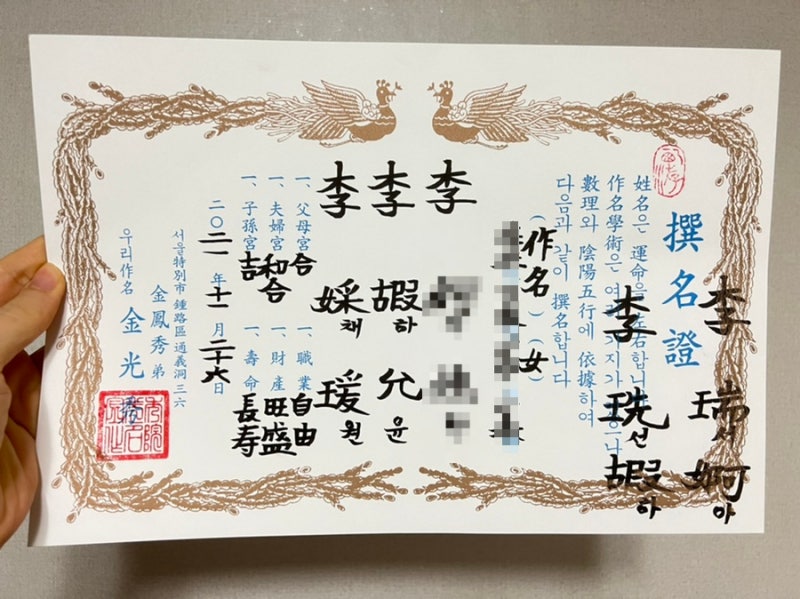 李 瑞 婀아
撰名證
李 珗선 嘏하
姓名은 運命을 左右합니다
作名學術은 여러가지가
數理와 陰陽五行에 依據하여
다음과 같이 撰名합니다
(作名) (女)
李
李 嘏하 允윤
李 婇채 瑗원
一、父母宮 合 一、職業 自由
一、夫婦宮 和合 一、財産 旺盛
一、子孫宮 吉 一、壽命 長寿
二〇二一年 十一月 二十六日
서울特別市 鍾路區 通義洞 三六
金鳳秀 弟
우리作名 金光